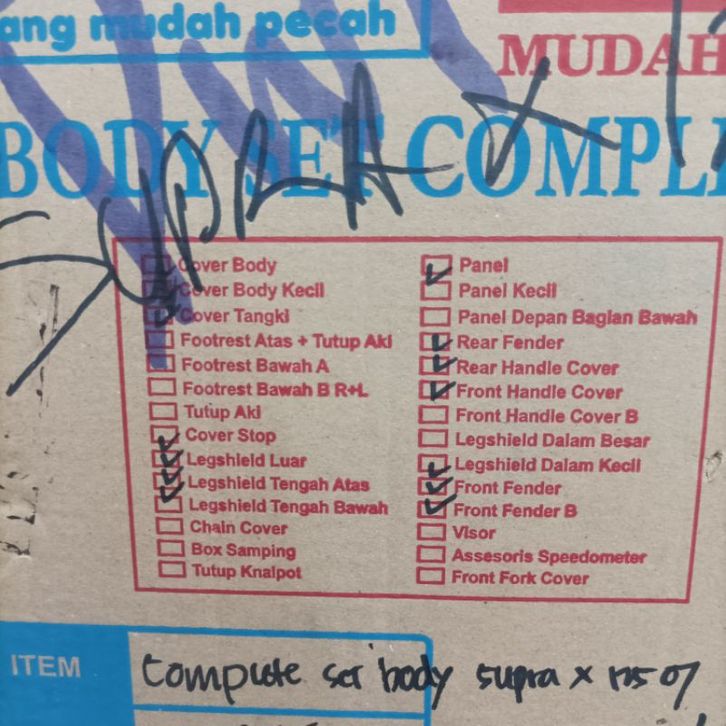 ang mudah pecah
MUDAH
BODY SET COMPL
SUPRA X
Cover Body
Cover Body Kecil
Cover Tangki
Footrest Atas + Tutup Aki
Footrest Bawah A
Footrest Bawah B R+L
Tutup Aki
Cover Stop
Legshield Luar
Legshield Tengah Atas
Legshield Tengah Bawah
Chain Cover
Box Samping
Tutup Knalpot
Panel
Panel Kecil
Panel Depan Bagian Bawah
Rear Fender
Rear Handle Cover
Front Handle Cover
Front Handle Cover B
Legshield Dalam Besar
Legshield Dalam Kecil
Front Fender
Front Fender B
Visor
Assesoris Speedometer
Front Fork Cover
ITEM
Complete set body supra x 125 07